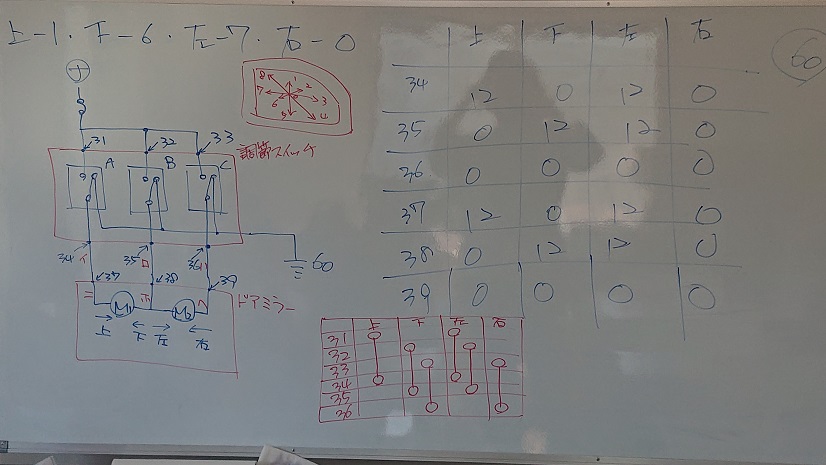 上-1・下-6・左-7・右-0
60
+
31 32 33
調節スイッチ
A B C
8 1 2
7 3
6 5 4
34 イ 35 ロ 36 ハ
60
37 38 39
ニ ホ ヘ
ドアミラー
M1 M2
→上 ←下 →左 ←右
上 下 左 右
34 12 0 12 0
35 0 12 12 0
36 0 0 0 0
37 12 0 12 0
38 0 12 12 0
39 0 0 0 0
上 下 左 右
31
32
33
34
35
36